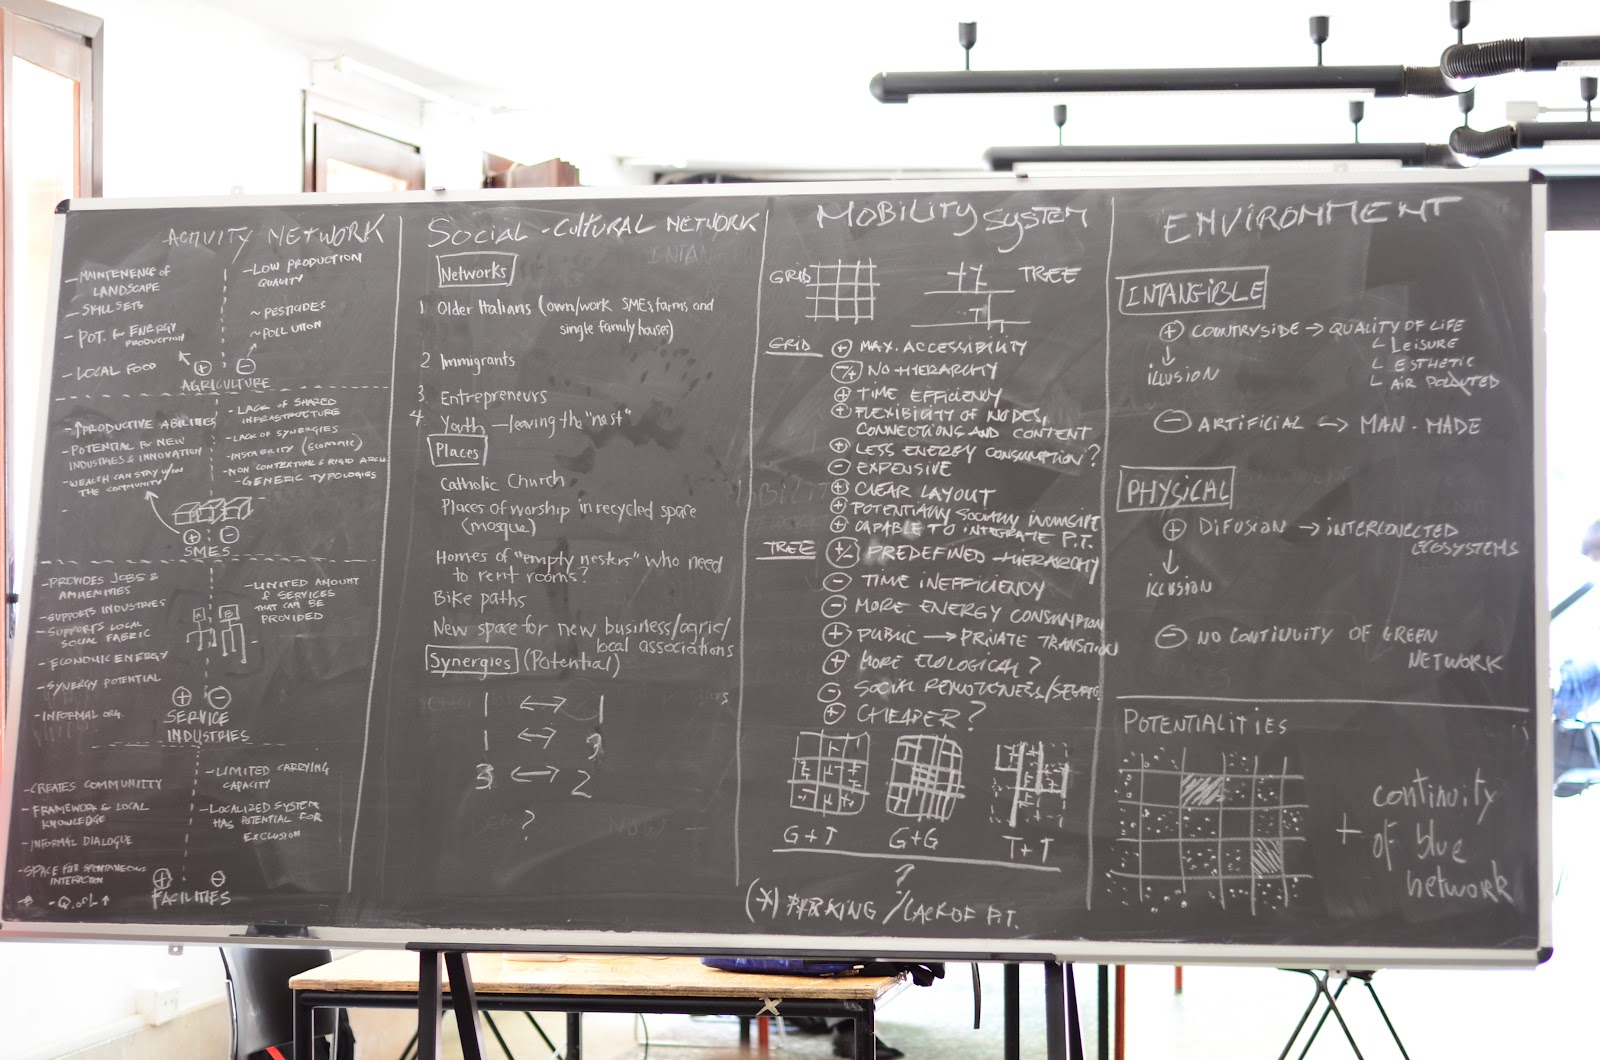 ACTIVITY NETWORK
- MAINTENENCE of
LANDSCAPE
- SKILL SETS
- POT. for ENERGY
PRODUCTION
- LOCAL FOOD
- LOW PRODUCTION
QUALITY
~ PESTICIDES
~ POLLUTION
+ -
AGRICULTURE
- ↑PRODUCTIVE ABILITIES
- POTENTIAL for NEW
INDUSTRIES & INNOVATION
- WEALTH CAN STAY W/IN
THE COMMUNITY
- LACK OF SHARED
INFRASTRUCTURE
- LACK OF SYNERGIES
- INSTABILITY (ECONOMIC)
- NON CONTEXTUAL & RIGID ARCH.
- GENERIC TYPOLOGIES
+ -
SMES
- PROVIDES JOBS &
AMMENITIES
- SUPPORTS INDUSTRIES
- SUPPORTS LOCAL
SOCIAL FABRIC
- ECONOMIC ENERGY
- SYNERGY POTENTIAL
- INFORMAL ORG.
- LIMITED AMOUNT
of SERVICES
THAT CAN BE
PROVIDED
A B
+ -
SERVICE
INDUSTRIES
- CREATES COMMUNITY
- FRAMEWORK & LOCAL
KNOWLEDGE
- INFORMAL DIALOGUE
- SPACE FOR SPONTANEOUS
INTERACTION
- Q. of L ↑
- LIMITED CARRYING
CAPACITY
- LOCALIZED SYSTEM
HAS POTENTIAL FOR
EXCLUSION
+ -
FACILITIES
SOCIAL - CULTURAL NETWORK
Networks
1 Older Italians (own/work SMEs, farms and
single family houses)
2 Immigrants
3. Entrepreneurs
4 Youth — leaving the "nest"
Places
Catholic Church
Places of worship in recycled space
(mosque)
Homes of "empty nesters" who need
to rent rooms?
Bike paths
New space for new business/agric/
local associations
Synergies (Potential)
1 ↔ 1
1 ↔ 3
3 ↔ 2
?
MOBILITY SYSTEM
GRID TREE
GRID + MAX. ACCESSIBILITY
-/+ NO HIERARCHY
+ TIME EFFICIENCY
+ FLEXIBILITY OF NODES,
CONNECTIONS AND CONTENT
+ LESS ENERGY CONSUMPTION?
- EXPENSIVE
+ CLEAR LAYOUT
+ POTENTIALLY SOCIALLY INCLUSIVE
+ CAPABLE TO INTEGRATE P.T.
TREE +/- PREDEFINED → HIERARCHY
- TIME INEFFICIENCY
- MORE ENERGY CONSUMPTION
+ PUBLIC → PRIVATE TRANSITION
+ MORE ECOLOGICAL?
- SOCIAL REMOTENESS/SEGREG
+ CHEAPER?
G+T G+G T+T
?
(*) PARKING / LACK OF P.T.
ENVIRONMENT
INTANGIBLE
+ COUNTRYSIDE → QUALITY OF LIFE
↓ └ LEISURE
ILLUSION └ ESTHETIC
└ AIR POLLUTED
- ARTIFICIAL ↔ MAN-MADE
PHYSICAL
+ DIFUSION → INTERCONECTED
ECOSYSTEMS
↓
ILLUSION
- NO CONTINUITY OF GREEN
NETWORK
POTENTIALITIES
+ continuity
of blue
network